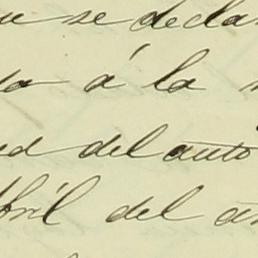 se decla
á la
del auto
Abril del a